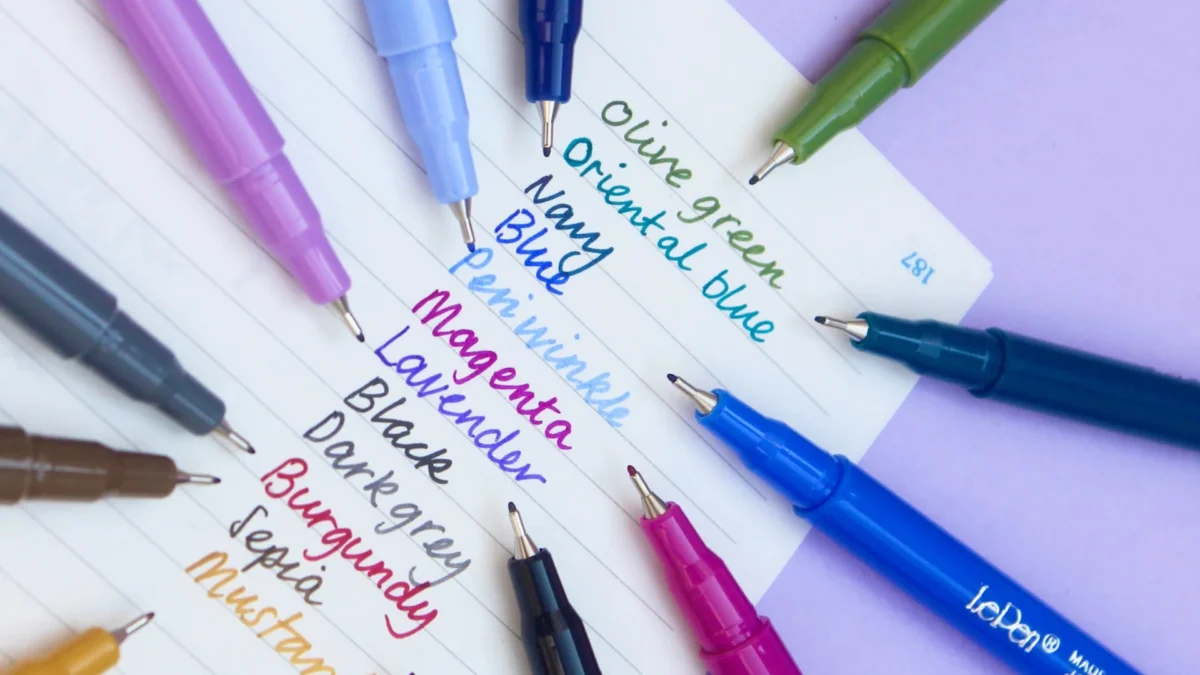 Olive green
Oriental blue
Navy
Blue
Periwinkle
Magenta
Lavender
Black
Dark grey
Burgundy
Sepia
Mustar
187
LePen®